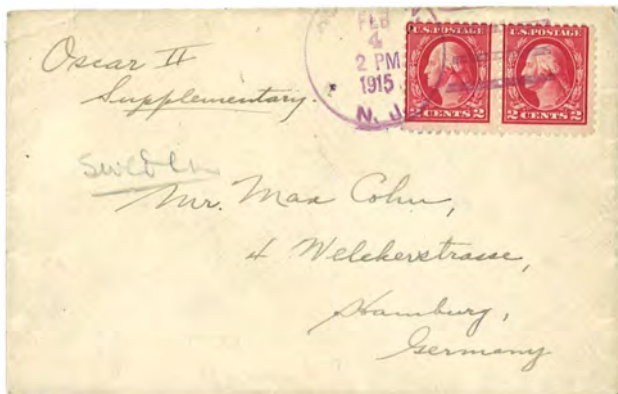 Oscar II
Supplementary.
FEB
4
2 PM
1915
N. J.
U.S. POSTAGE
2 CENTS 2
U.S. POSTAGE
2 CENTS 2
Sweden
Mr. Max Cohn,
4 Welckerstrasse,
Hamburg,
Germany